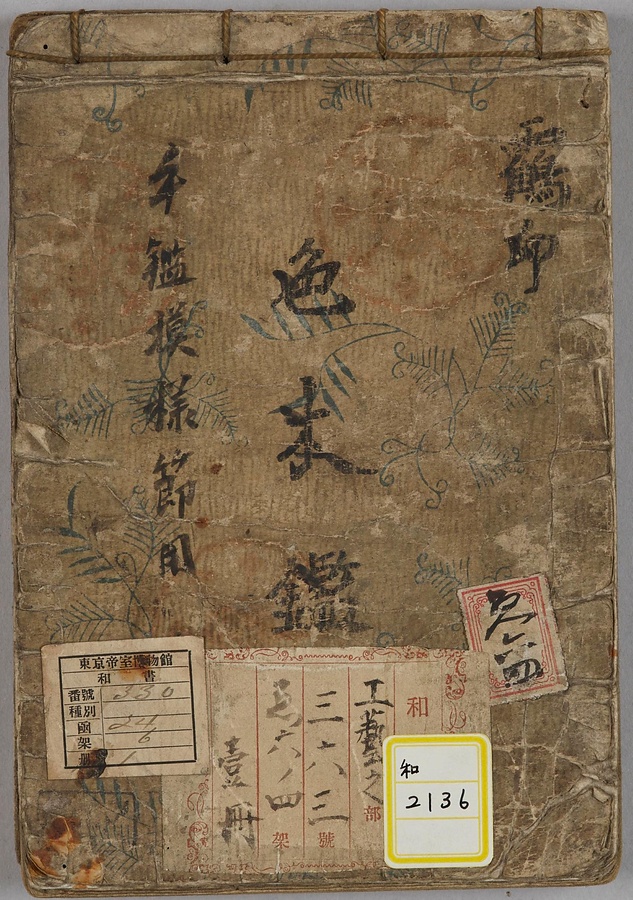 鶴印
色末鑑
手鑑模様節用
ゑ六ノ四
和
工藝之部
三六三號
ゑ六ノ四架
壹冊
東京帝室博物館
和書
番號 330
種別
函 24
架 6
册 1
和
2136